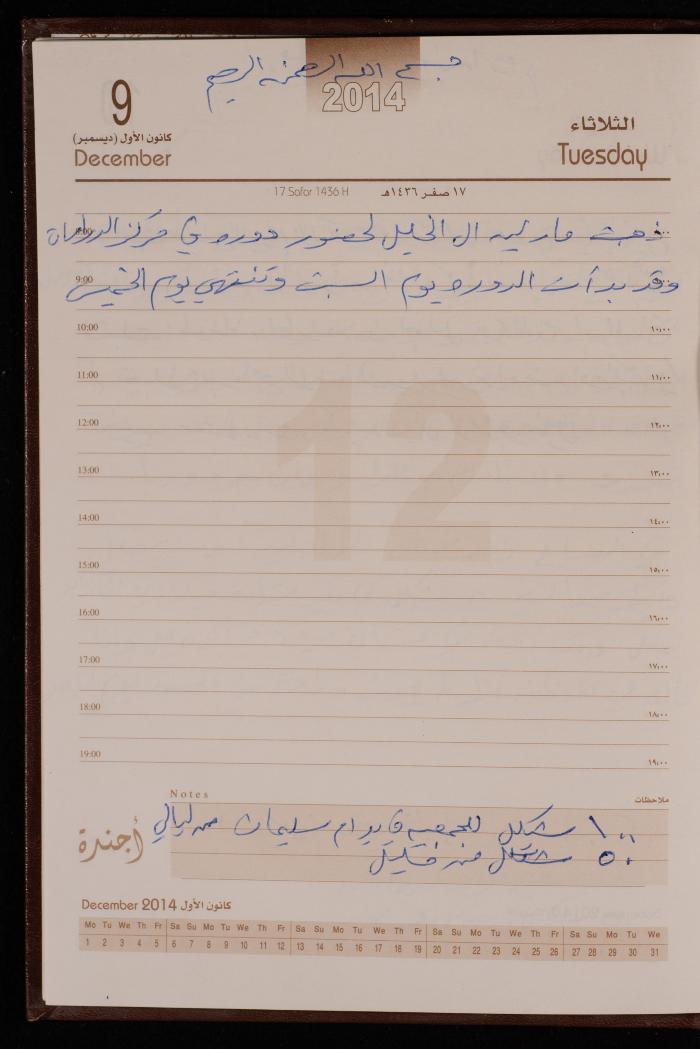 بسم الله الرحمن الرحيم
2014
9
كانون الأول (ديسمبر)
December
الثلاثاء
Tuesday
17 Safar 1436 H
١٧ صفر ١٤٣٦هـ
ذهبت ماد ليه الى الخليل لحضور دوره في مركز الدراسات
8:00
وقد بدأت الدوره يوم السبت وتنتهي يوم الخميس
9:00
10:00 ١٠:٠٠
11:00 ١١:٠٠
12:00 ١٢:٠٠
12
13:00 ١٣:٠٠
14:00 ١٤:٠٠
15:00 ١٥:٠٠
16:00 ١٦:٠٠
17:00 ١٧:٠٠
18:00 ١٨:٠٠
19:00 ١٩:٠٠
Notes ملاحظات
١٠٠ شيكل للجمعيه في يد ام سليمان من ليالي
٥٠ شيكل من
أجندة
December 2014 كانون الأول
Mo Tu We Th Fr Sa Su Mo Tu We Th Fr Sa Su Mo Tu We Th Fr Sa Su Mo Tu We Th Fr Sa Su Mo Tu We
1 2 3 4 5 6 7 8 9 10 11 12 13 14 15 16 17 18 19 20 21 22 23 24 25 26 27 28 29 30 31